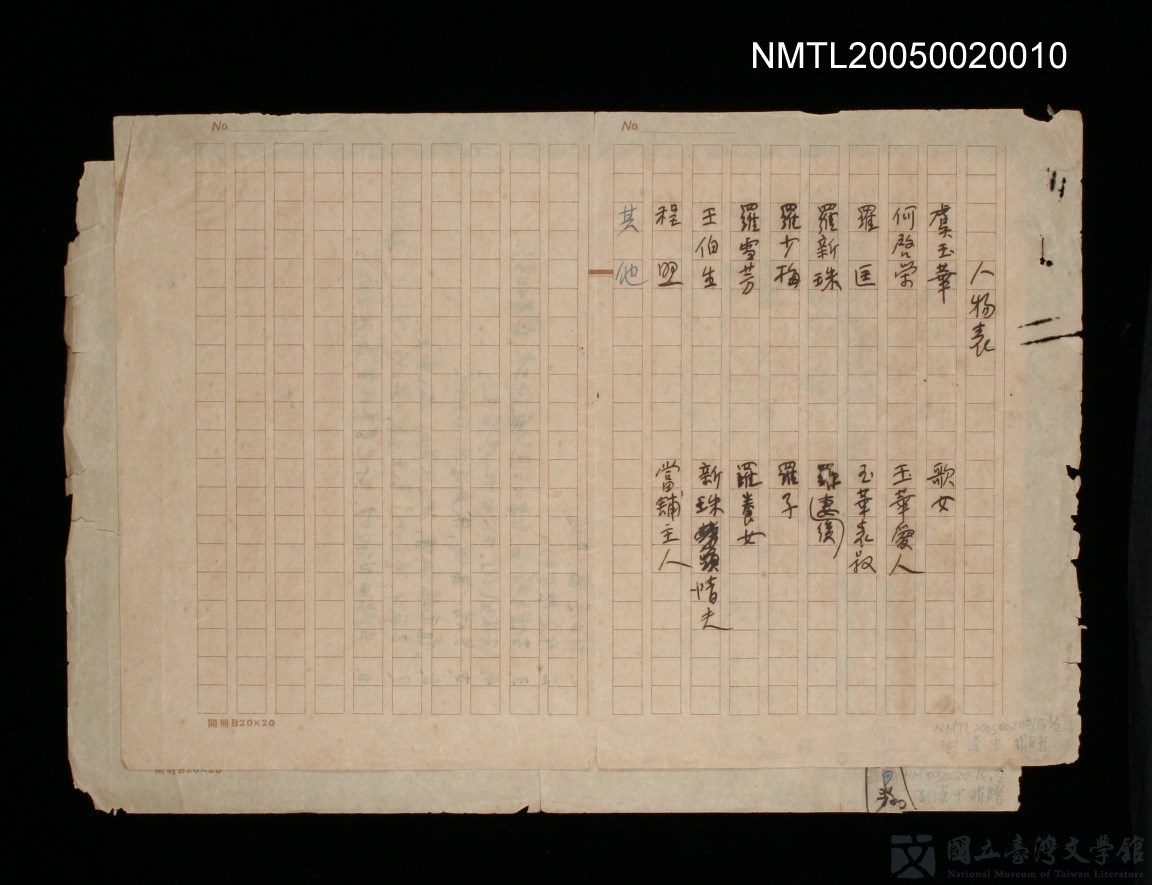 NMTL20050020010
No.
No.
人物表
虞玉華 歌女
何啓荣 玉華愛人
羅 匡 玉華表叔
羅新珠
羅少梅 羅子
羅雪芳 羅養女
王伯生 新珠情夫
程 盟 當舖主人
其 他
開明B20×20
開明B20×20
國立臺灣文學館
National Museum of Taiwan Literature